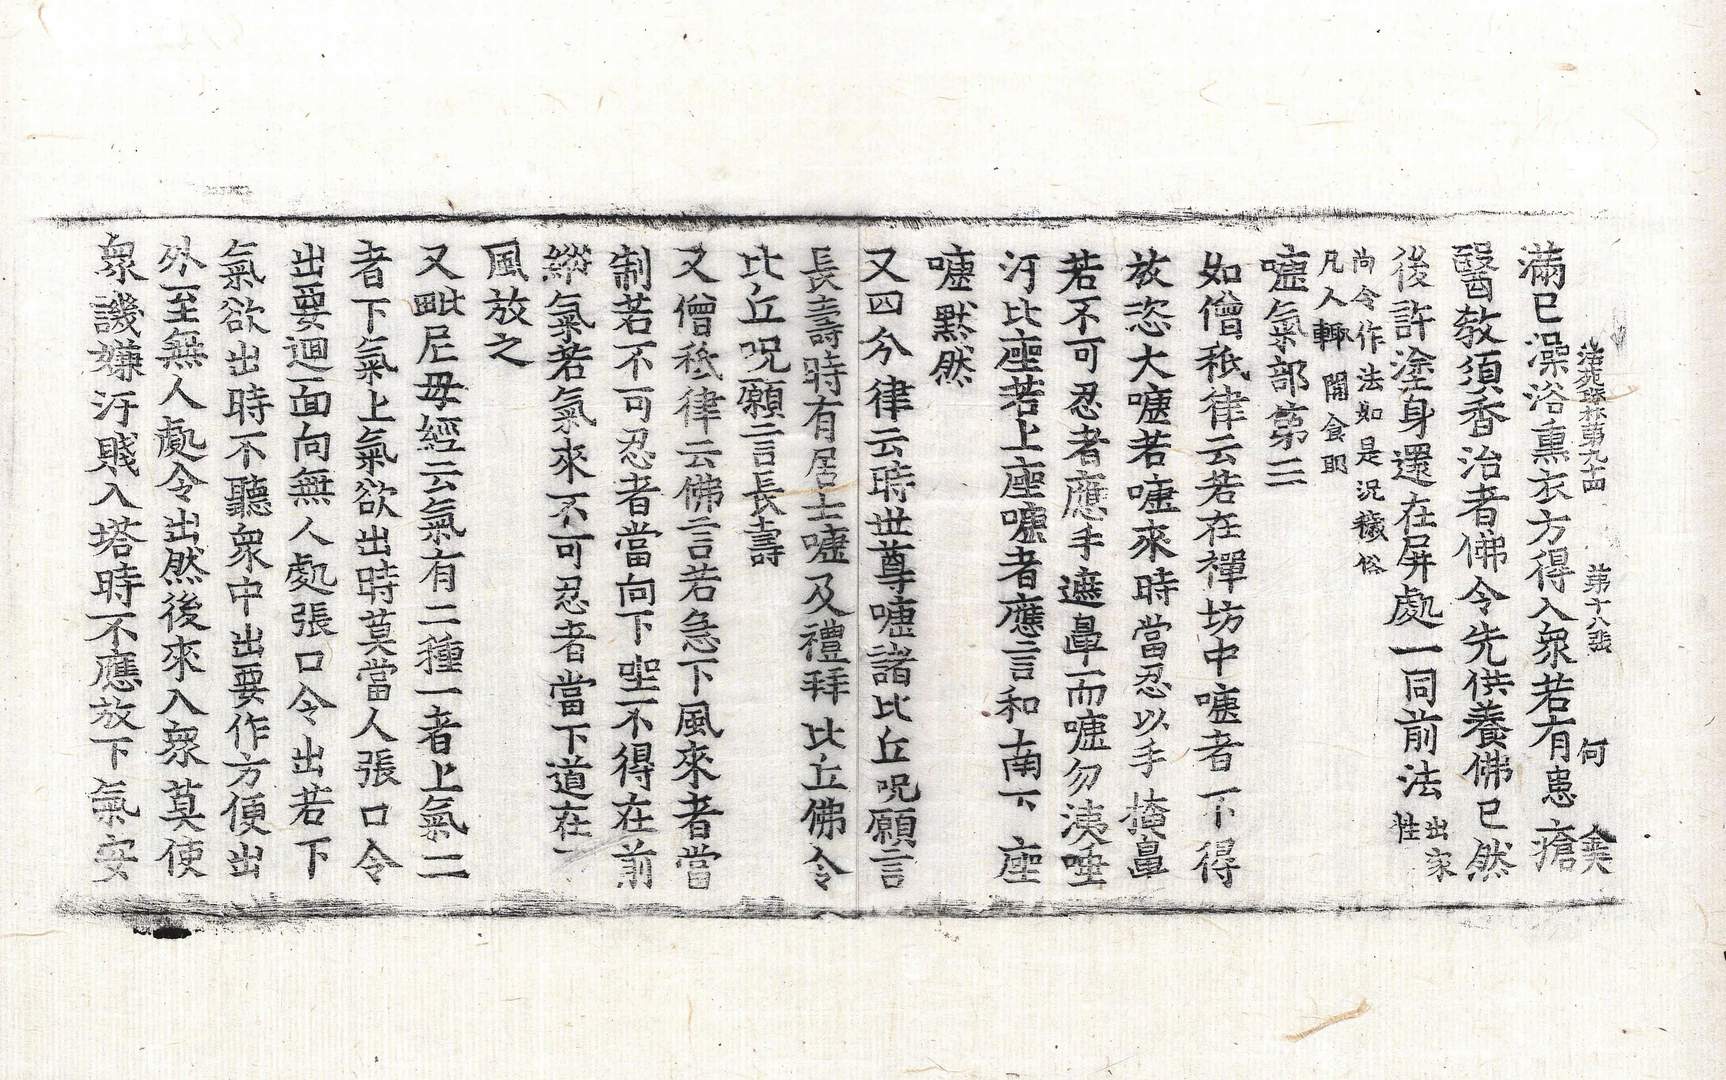 法苑珠林第九十四 第十八張 何
滿已澡浴熏衣方得入衆若有患瘡
醫教須香治者佛令先供養佛已然
後許塗身還在屏處一同前法出家性
尚令作法如是況穢俗
凡人輒開食耶
嚏氣部第三
如僧秖律云若在禪坊中嚏者不得
放恣大嚏若嚏來時當忍以手掩鼻
若不可忍者應手遮鼻而嚏勿洟唾
汙比座若上座嚏者應言和南下座
嚏默然
又四分律云時世尊嚏諸比丘呪願言
長壽時有居士嚏及禮拜比丘佛令
比丘呪願言長壽
又僧秖律云佛言若急下風來者當
制若不可忍者當向下坐不得在前
縱氣若氣來不可忍者當下道在下
風放之
又毗尼毋經云氣有二種一者上氣二
者下氣上氣欲出時莫當人張口令
出要迴面向無人處張口令出若下
氣欲出時不聽衆中出要作方便出
外至無人處令出然後來入衆莫使
衆譏嫌汙賤入塔時不應放下氣安